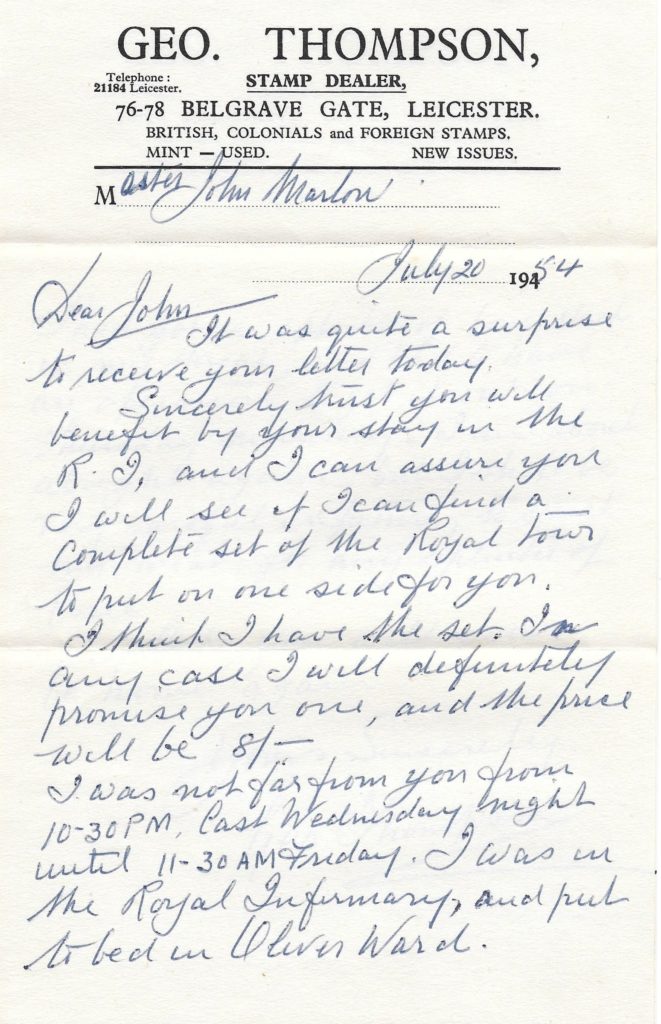 GEO. THOMPSON,
Telephone :
21184 Leicester.
STAMP DEALER,
76-78 BELGRAVE GATE, LEICESTER.
BRITISH, COLONIALS and FOREIGN STAMPS.
MINT — USED. NEW ISSUES.
Master John Marlon
July 20 1954
Dear John
It was quite a surprise
to receive your letter today.
Sincerely trust you will
benefit by your stay in the
R. I, and I can assure you
I will see if I can find a
complete set of the Royal Tour
to put on one side for you.
I think I have the set. In
any case I will definitely
promise you one, and the price
will be 8/-
I was not far from you from
10-30 PM, Last Wednesday night
until 11-30 AM Friday. I was in
the Royal Infirmary, and put
to bed in Oliver Ward.